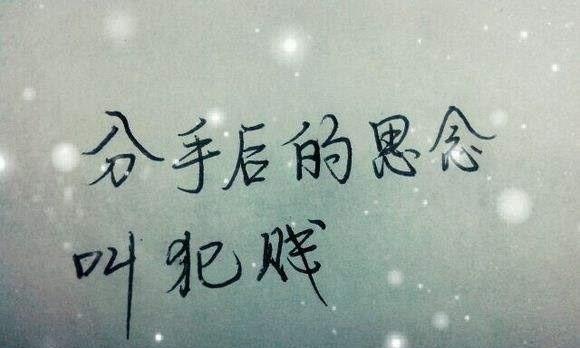 分手后的思念
叫犯贱